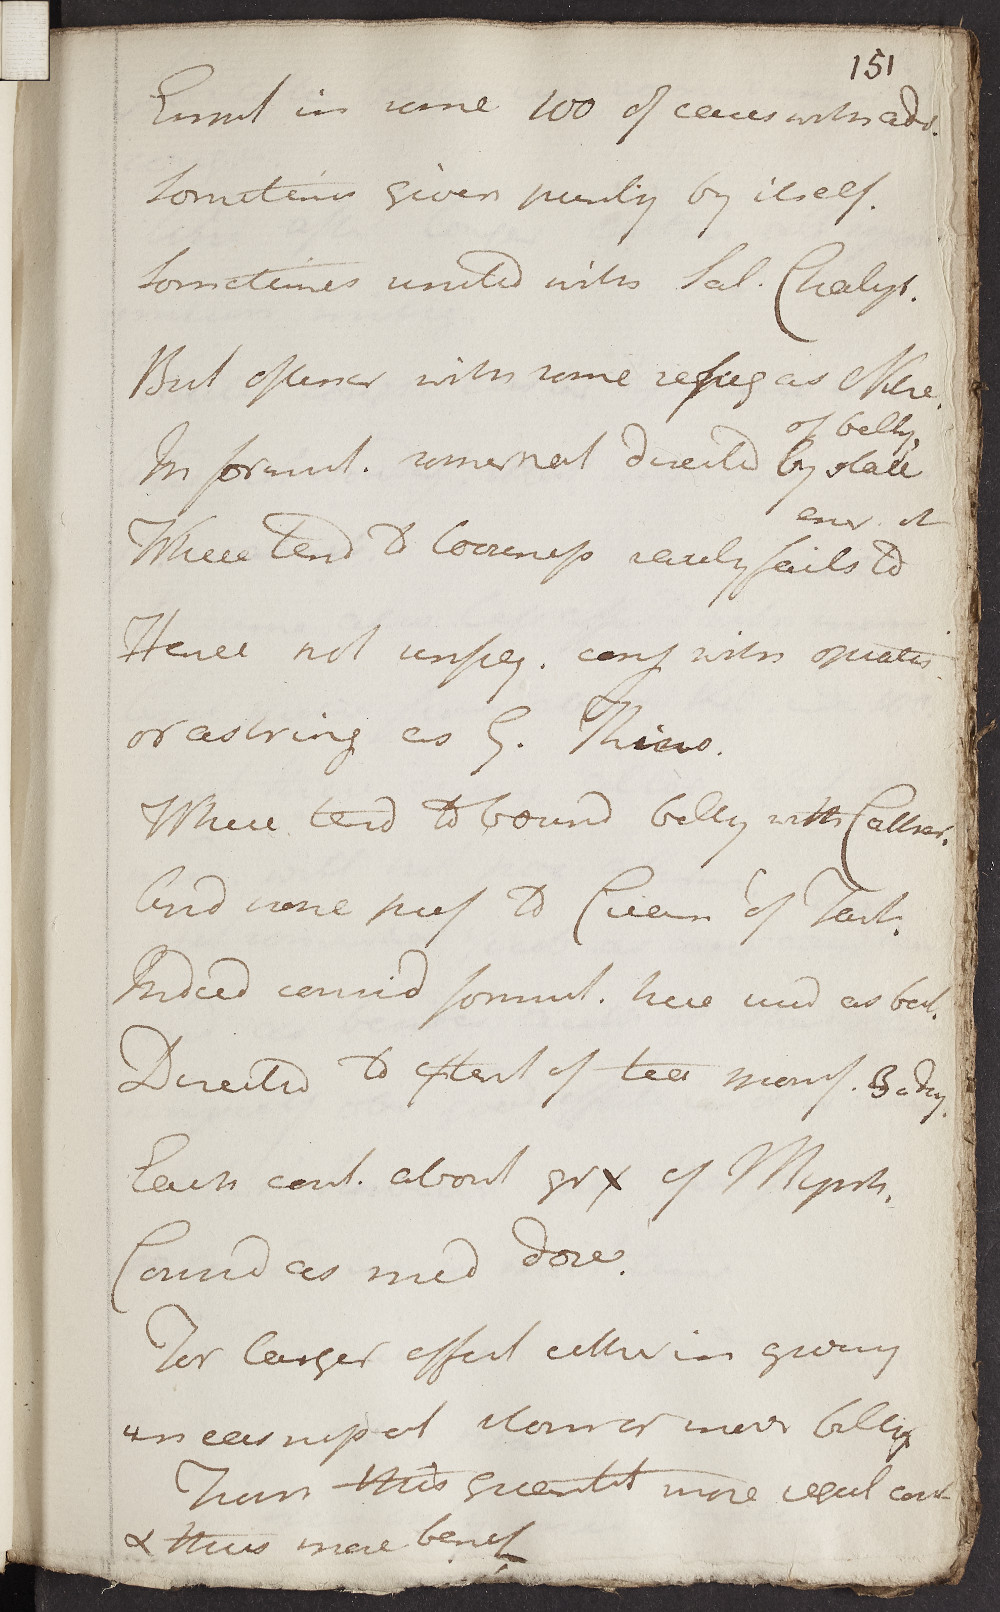 151
in some 100 of cases with adv.
Sometimes given purely by itself.
Sometimes united with Sal. Chalyb.
But oftener with some as
of belly
In formul. somewhat directed by state
Where tend to looseness rarely fails to
Hence not conj with opiates
or astring as G. Thieves.
Where tend to bound belly with Cathar.
And none pref to Cream of Tart.
Indeed formul. here used as best.
Directed to extent of tea 3 a day.
Each cont. about grx of Myrrh.
Cound as med dose.
For larger effect either in giving
uneasiness at stomach or belly
Than this quantit more regul cont
& thus more benef